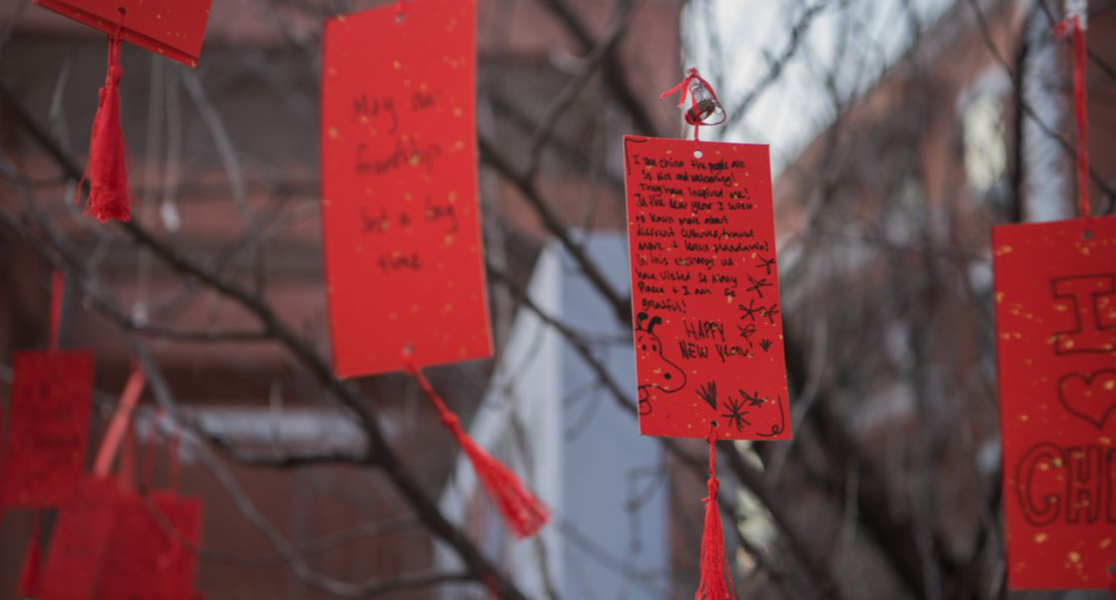 May our
friendship
last a long
time
I say China the people are
so nice and welcoming!
They have inspired me!
In the new year I wish
to learn more about
different cultures, travel
more + learn mandarin!
In this exchange we
have visited so many
places + I am so
grateful!
HAPPY
NEW YEAR!
I
♡
CHI